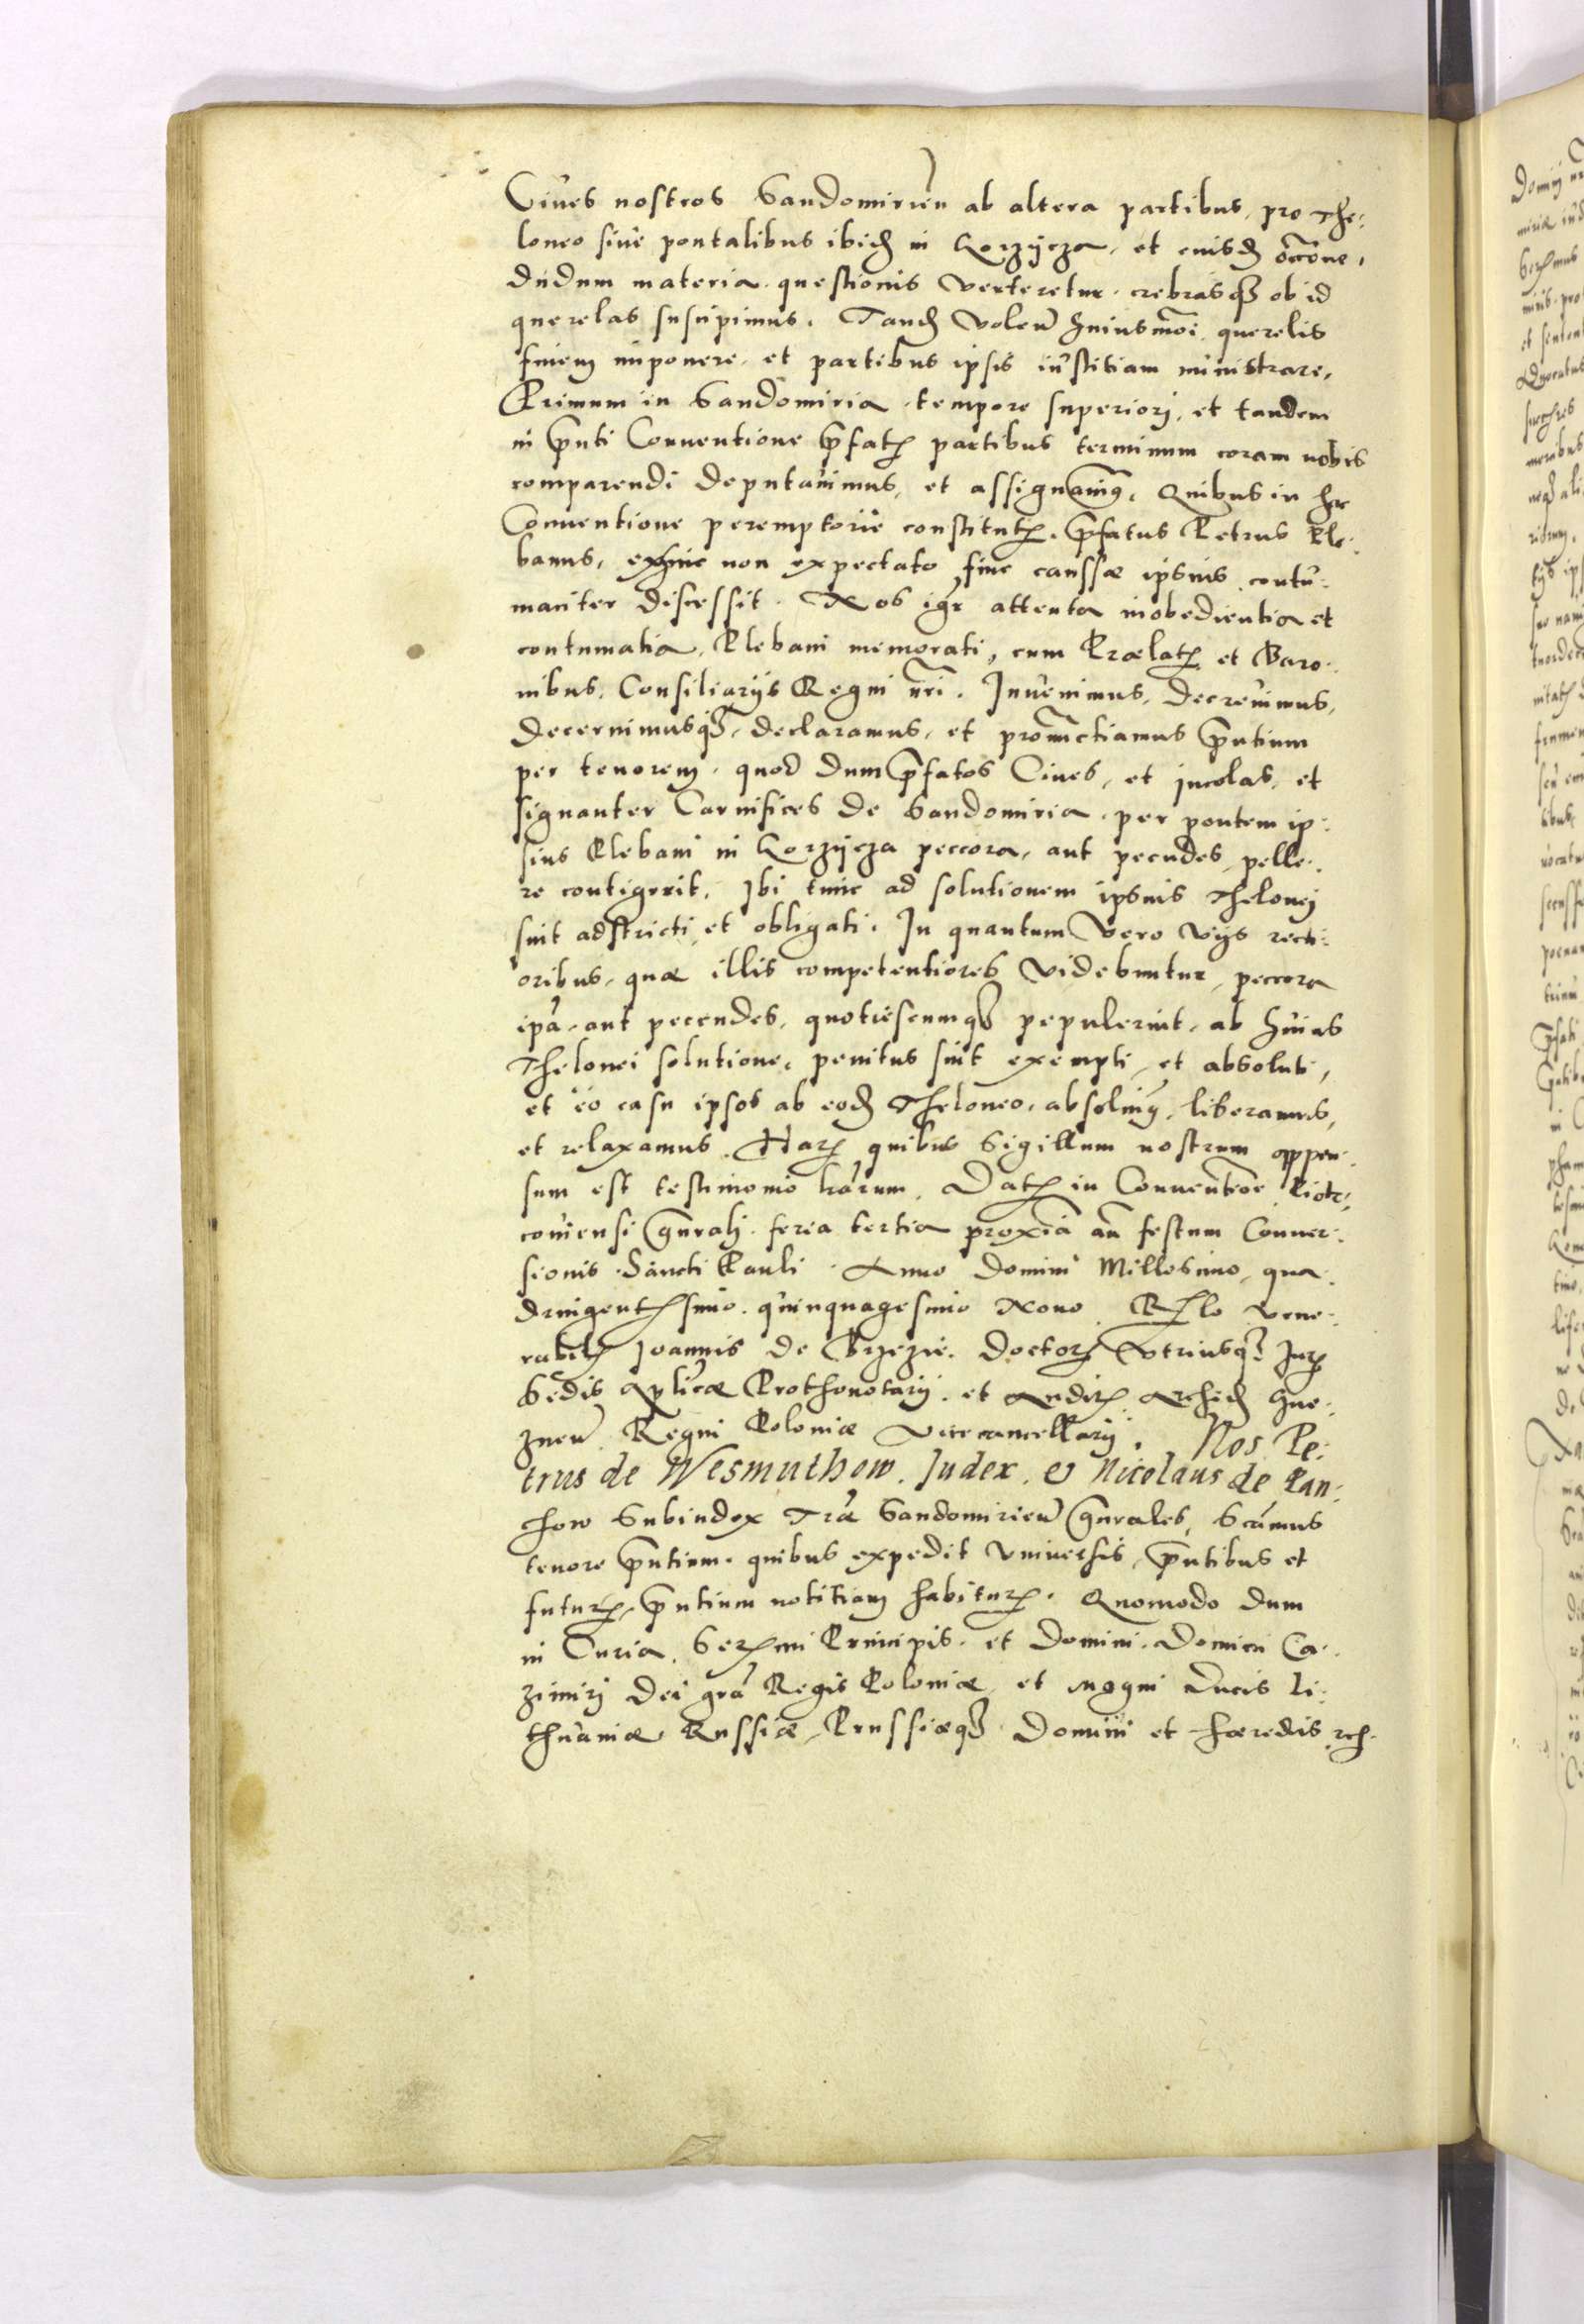 Ciues nostros Sandomirien̄ ab altera partibus, pro The:
loneo siue pontalibus ibid in Gorzÿcza, et eiusd occōne,
dudum materia questionis verteretur, crebrasq ob id
querelas suscipimus. Tand volen̄ huiusmōi querelis
finem imponere, et partibus ipsis iustitiam ministrare,
Primum in Sandomiria tempore superiorj, et tandem
in p̄nti Conuentione p̄fatis partibus terminum coram nobis
comparendi deputauimus, et assignauimꝰ, Quibus in hac
Conuentione peremptorie constitutis, p̄fatus Petrus Ple:
banus, exhinc non expectato fine caussæ ipsius contu:
maciter discessit. Nos igr attenta inobedientia et
contumatia, Plebani memorati, cum Prælatis et Baro:
nibus, Consiliarÿs Regni n̄ri. Inuenimus, decreuimus,
decernimusq, declaramus, et pronunctiamus p̄ntium
per tenorem, quod dum p̄fatos Ciues, et incolas, et
signanter Carnifices de Sandomiria, per pontem ip:
sius Plebani in Gorzÿcza peccora, aut pecudes pelle:
re contigerit, Ibi tunc ad solutionem ipsius Thelonej
sint adstricti et obligati. In quantum vero vÿs recti:
oribus, quæ illis competentiores videbuntur, peccora
ip̄a, aut peccudes, quotiescumq pepulerint, ab huius
Thelonei solutione, penitus sint exempti, et absoluti,
et eo casu ipsos ab eod Theloneo, absoluimꝰ, liberamus,
et relaxamus. Harꝫ quibus Sigillum nostrum appen:
sum est testimonio l̄rarum. Datꝫ in Conuent̄one Piotr:
couiensi gn̄ralj. feria tertia prox̄ia an̄ festum Conuer:
sionis Sancti Pauli. Anno Domini Millesimo, qua
dringentesimo quinquagesimo Nono. Rlo vene:
rabilis Ioannis de Brzezie. Doctoris Vtriusq Juris
Sedis Ap̄licæ Prothonotarij et Auditꝫ Archid Gne:
znen̄ Regni Poloniæ Vicecancellarij. Nos Pe:
trus de Wesmuthow. Judex, & Nicolaus de Pan:
chow Subiudex T̄ræ Sandomirien̄ gn̄rales, Scimus
tenore p̄ntium, quibus expedit vniuersis, p̄ntibus et
futuris, p̄ntium notitiam habituris. Quomodo dum
in Curia, Serꝫmi Principis, et Domini Domini Ca:
zimirj Dei gr̄a Regis Poloniæ, et Magni Ducis Li:
thuaniæ, Russiæ, Prussiæq Domini et hæredis, ꝛcꝫ